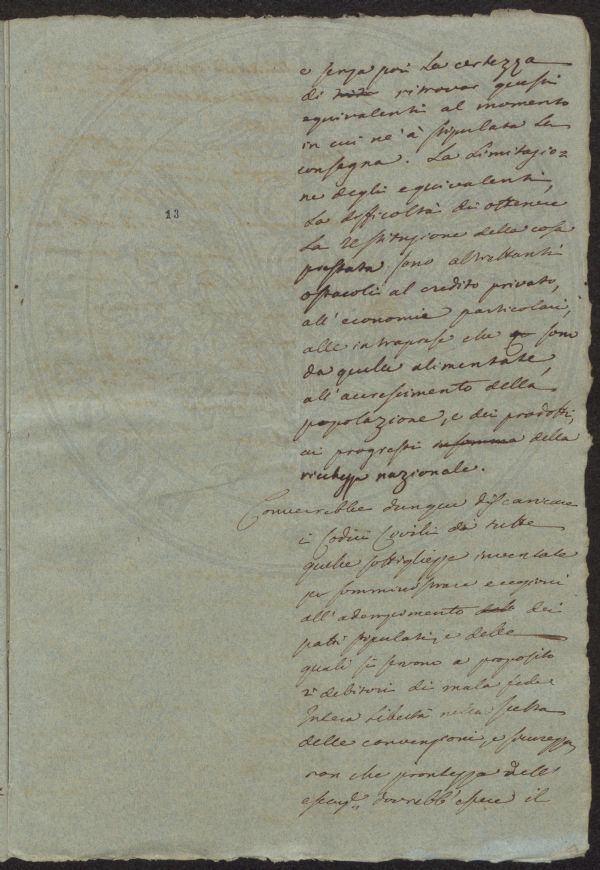 e senza poi la certezza
di ritrovar questi
equivalenti al momento
in cui ne à stipulata la
consegna. La limitazio=
ne degli equivalenti,
La difficoltà di ottenere
La restituzione della cosa
prestata sono altrettanti
ostacoli al credito privato,
all'economie particolari,
alle intraprese che sono
da quelle alimentate,
all'accrescimento della
popolazione, e dei prodotti,
ai progressi insomma della
ricchezza nazionale.
13
Converrebbe dunque discaricare
i Codici Civili da tutte
quelle sottigliezze inventate
per somministrare eccezioni
all'adempimento dei
patti stipulati, e delle
quali si servono a proposito
i debitori di mala fede.
Intera libertà nella scelta
delle convenzioni, e sicurezza
non che prontezza dell'
dovrebb'essere il